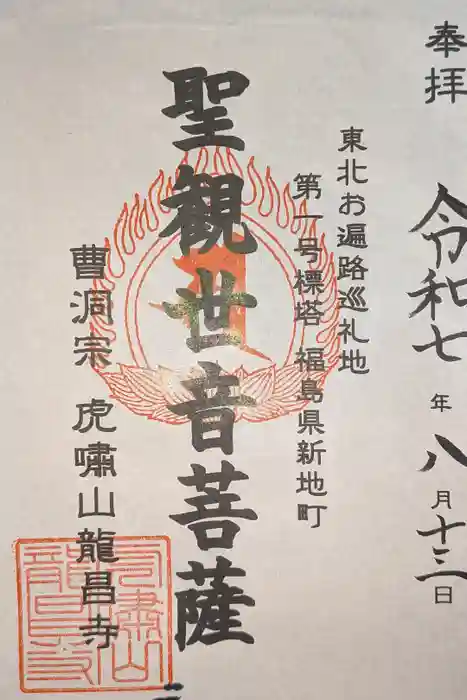 奉拝
令和七年八月十三日
東北お遍路巡礼地
第一号標塔 福島県新地町
聖観世音菩薩
曹洞宗 虎嘯山龍昌寺
虎嘯山
龍昌寺